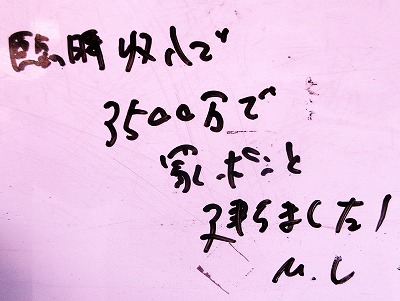 臨時収入で
3500万で
家ボンと
建ちました!
M.C